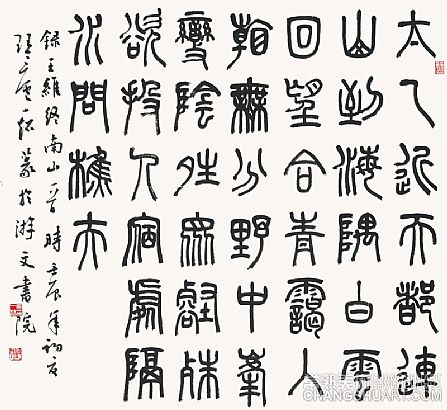 太乙近天都連
山到海隅白雲
回望合青靄入
看無分野中峯
變陰晴衆壑殊
欲投人宿處隔
水問樵夫
錄王維終南山一首 時壬辰年初夏
篆於游文書院
CHANGCHUART.COM